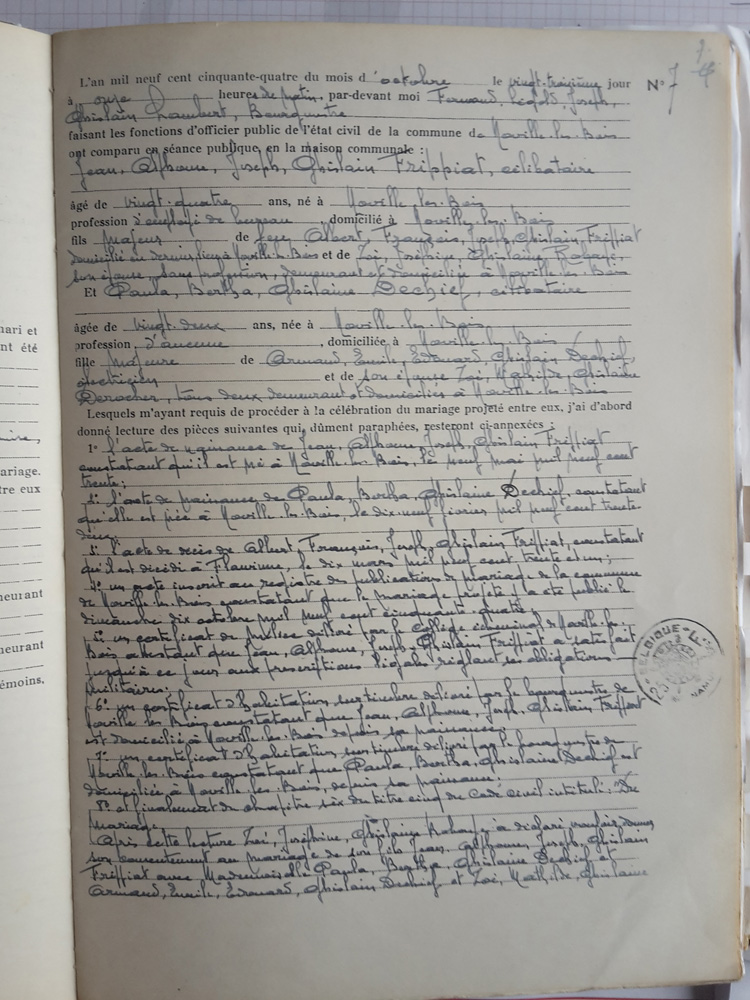 L'an mil neuf cent cinquante-quatre du mois d'octobre le vingt-troisième jour N° 7
à onze heures du matin, par-devant moi Fernand, Léopold, Joseph,
Ghislain Lambert, Bourgmestre
faisant les fonctions d'officier public de l'état civil de la commune de Noville-les-Bois
ont comparu en séance publique, en la maison communale :
Jean, Alphonse, Joseph, Ghislain Frippiat, célibataire
âgé de vingt-quatre ans, né à Noville-les-Bois
profession d'employé de bureau, domicilié à Noville-les-Bois
fils majeur de feu Albert, François, Joseph, Ghislain Frippiat
domicilié en dernier lieu à Noville-les-Bois et de Zoé, Joséphine, Ghislaine,
son épouse, sans profession, demeurant et domiciliée à Noville-les-Bois
Et Paula, Bertha, Ghislaine Dechief, célibataire
âgée de vingt-deux ans, née à Noville-les-Bois
profession d'aucune, domiciliée à Noville-les-Bois
fille majeure de Armand, Emile, Edouard, Ghislain Dechief,
électricien et de son épouse Zoé, Mathilde, Ghislaine
Derocher, tous deux demeurant et domiciliés à Noville-les-Bois
Lesquels m'ayant requis de procéder à la célébration du mariage projeté entre eux, j'ai d'abord
donné lecture des pièces suivantes qui, dûment paraphées, resteront ci-annexées :
1° l'acte de naissance de Jean, Alphonse, Joseph, Ghislain Frippiat
constatant qu'il est né à Noville-les-Bois, le neuf mai mil neuf cent
trente ;
2° l'acte de naissance de Paula, Bertha, Ghislaine Dechief, constatant
qu'elle est née à Noville-les-Bois, le dix-neuf février mil neuf cent trente-
deux ;
3° l'acte de décès de Albert, François, Joseph, Ghislain Frippiat, constatant
qu'il est décédé à Flawinne, le dix mars mil neuf cent trente et un ;
4° un acte inscrit au registre des publications de mariage de la commune
de Noville-les-Bois constatant que le mariage projeté a été publié le
dimanche dix octobre mil neuf cent cinquante-quatre ;
5° un certificat de milice délivré par le Collège échevinal de Noville-les-
Bois attestant que Jean, Alphonse, Joseph, Ghislain Frippiat a satisfait
jusqu'à ce jour aux prescriptions légales réglant ses obligations
militaires.
6° un certificat d'habitation, sur timbre délivré par le bourgmestre de
Noville-les-Bois constatant que Jean, Alphonse, Joseph, Ghislain Frippiat
est domicilié à Noville-les-Bois depuis sa naissance ;
7° un certificat d'habitation, sur timbre délivré par le bourgmestre de
Noville-les-Bois constatant que Paula, Bertha, Ghislaine Dechief est
domiciliée à Noville-les-Bois, depuis sa naissance.
8° et finalement du chapitre six du titre cinq du Code civil intitulé : Du
mariage.
Après cette lecture Zoé, Joséphine, Ghislaine a déclaré vouloir donner
son consentement au mariage de son fils Jean, Alphonse, Joseph, Ghislain
Frippiat avec Mademoiselle Paula, Bertha, Ghislaine Dechief et
Armand, Emile, Edouard, Ghislain Dechief et Zoé, Mathilde, Ghislaine
mari et
ont été
mariage.
tre eux
meurant
meurant
témoins.
BELGIQUE